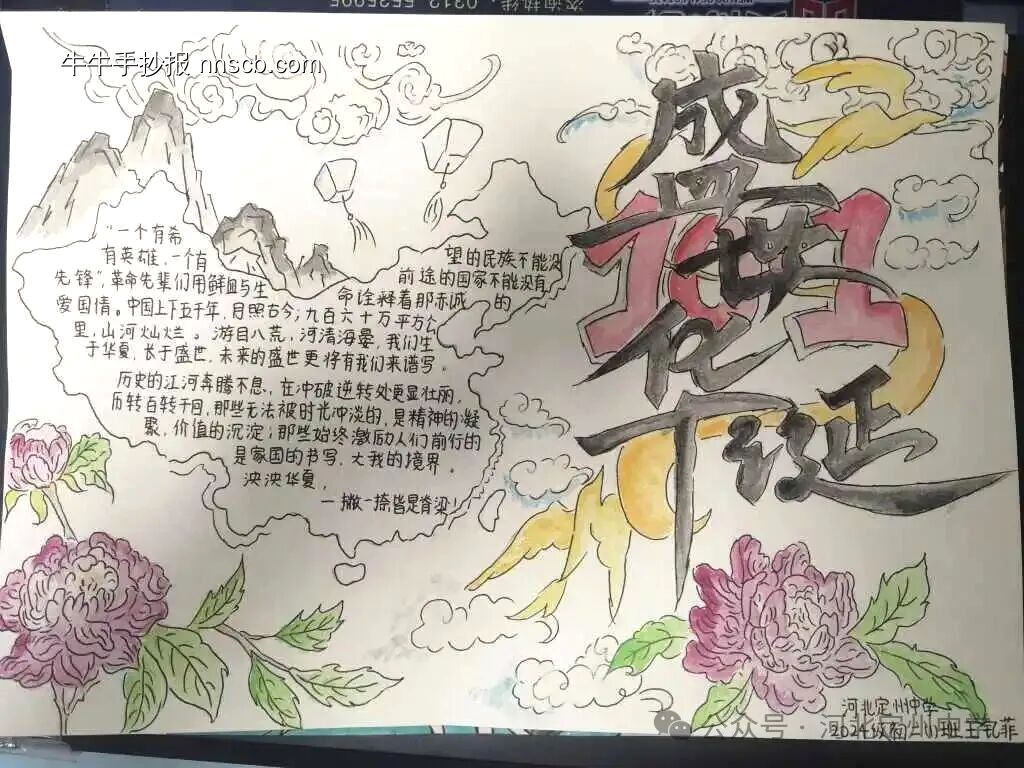 咨询热线: 0312 5535005
牛牛手抄报 nhscb.com
盛世华诞
101
“一个有希望的民族不能没
有英雄,一个有前途的国家不能没有
先锋”,革命先辈们用鲜血与生命诠释着那赤诚的
爱国情。中国上下五千年,月照古今;九百六十万平方公
里,山河灿烂。游目八荒,河清海晏,我们生
于华夏,长于盛世,未来的盛世更将有我们来谱写。
历史的江河奔腾不息,在冲破逆转处更显壮丽,
历转百转千回,那些无法被时光冲淡的,是精神的凝
聚,价值的沉淀;那些始终激励人们前行的
是家国的书写,大我的境界。
泱泱华夏,
一撇一捺皆是脊梁!
河北定州中学
公众号·河北